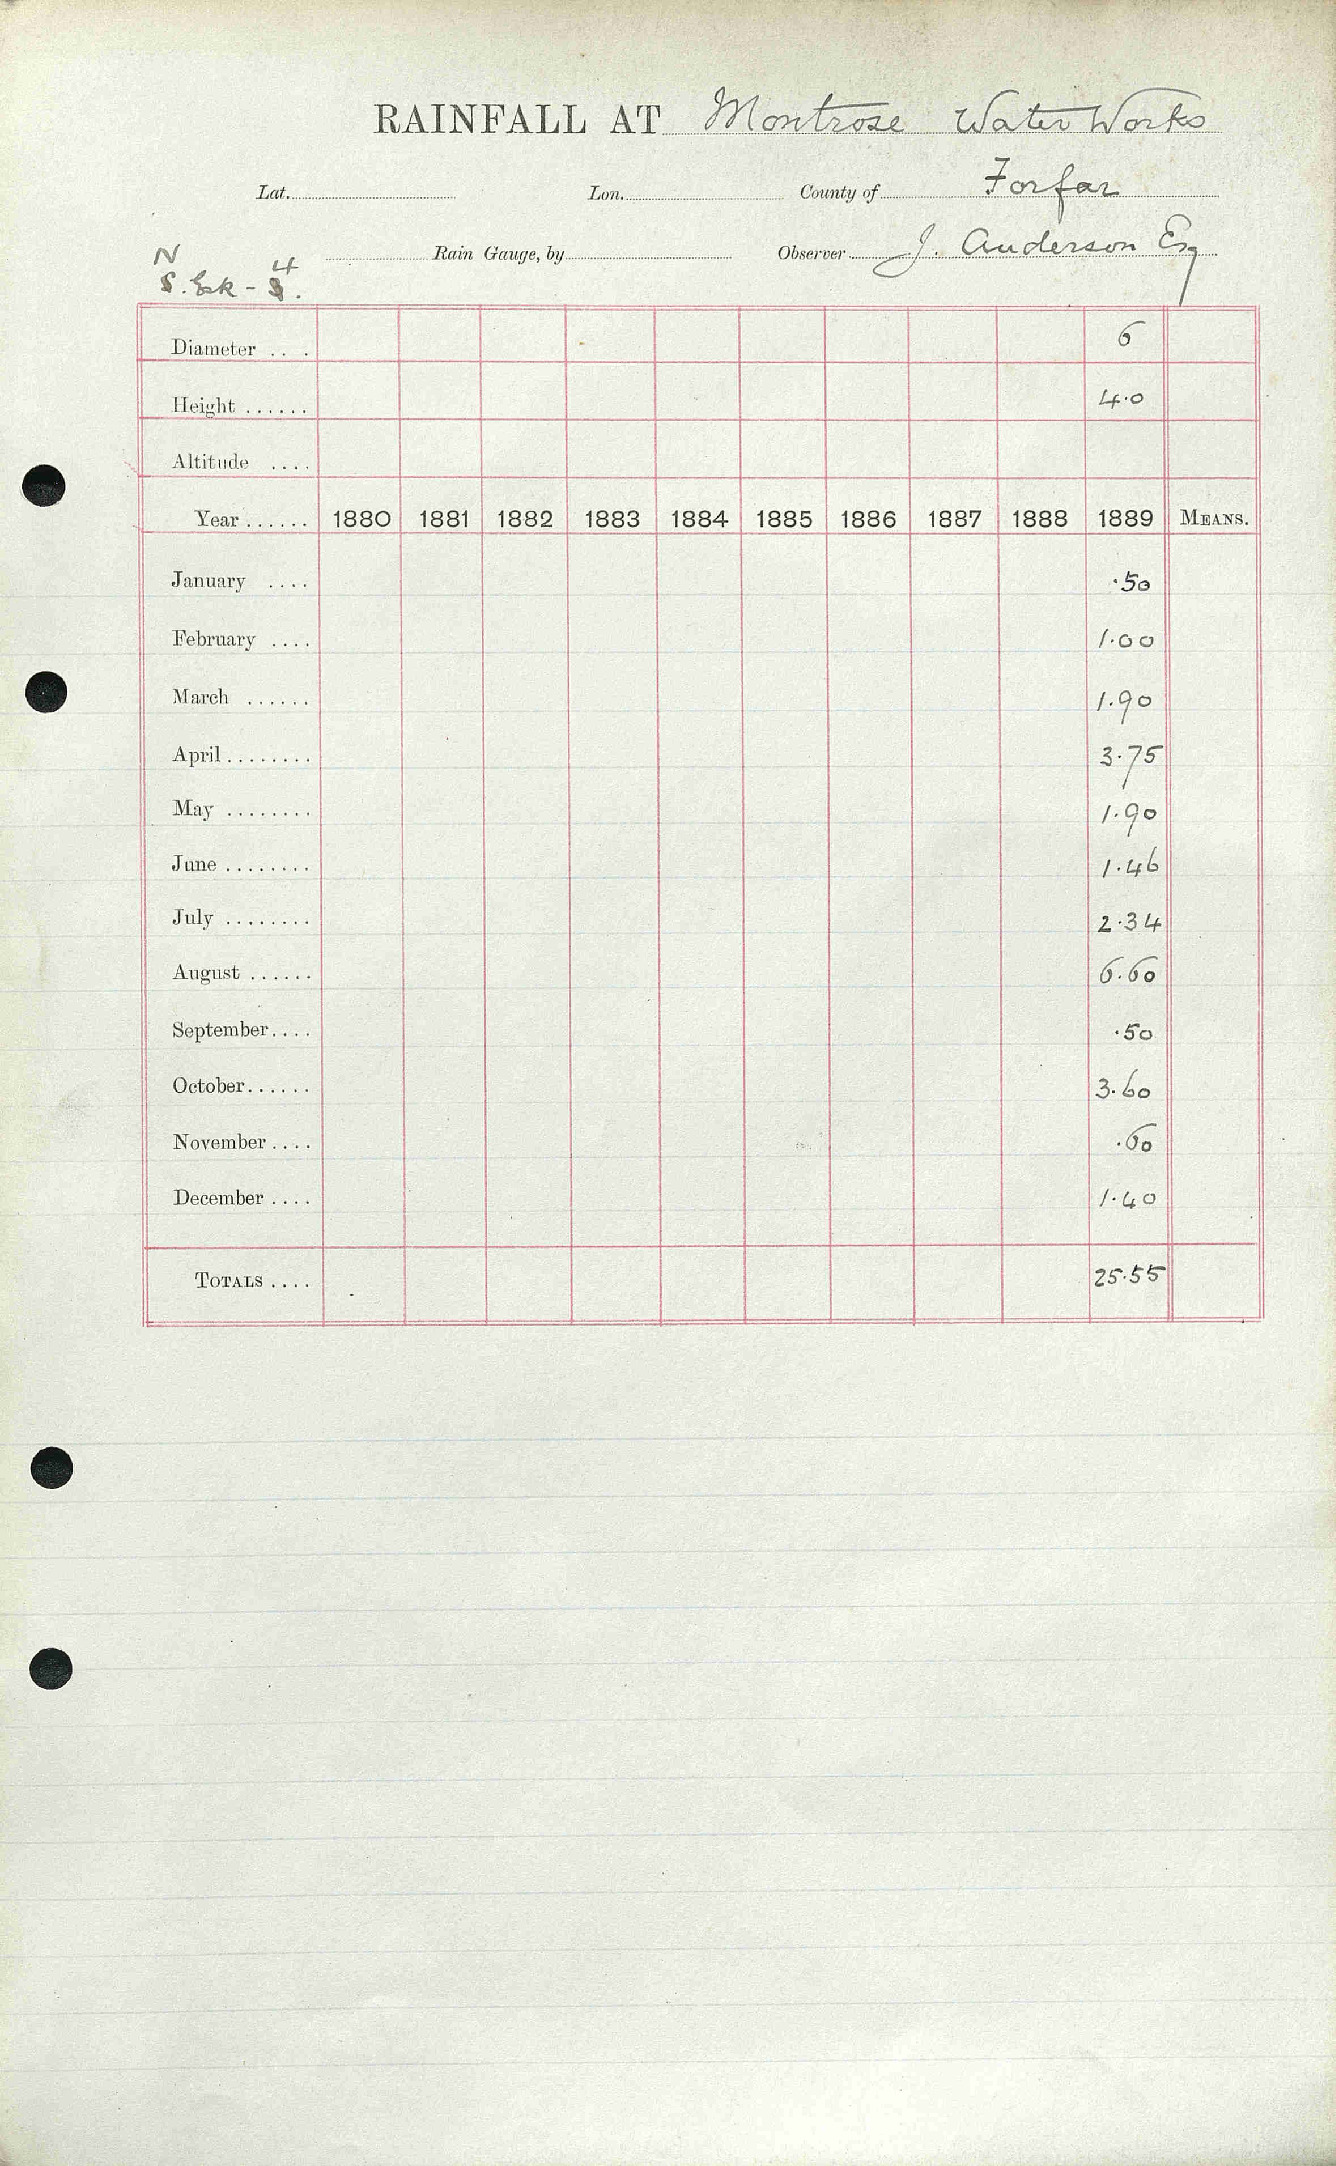 RAINFALL AT Montrose Water Works
Lat. Lon. County of Forfar
Rain Gauge, by Observer J. Anderson Esq
N 4
S. Esk - S.
Diameter ... 6
Height ...... 4.0
Altitude ....
Year ...... 1880 1881 1882 1883 1884 1885 1886 1887 1888 1889 MEANS.
January .... .50
February .... 1.00
March ...... 1.90
April ........ 3.75
May ........ 1.90
June ........ 1.46
July ........ 2.34
August ...... 6.60
September.... .50
October...... 3.60
November .... .60
December .... 1.40
TOTALS .... 25.55